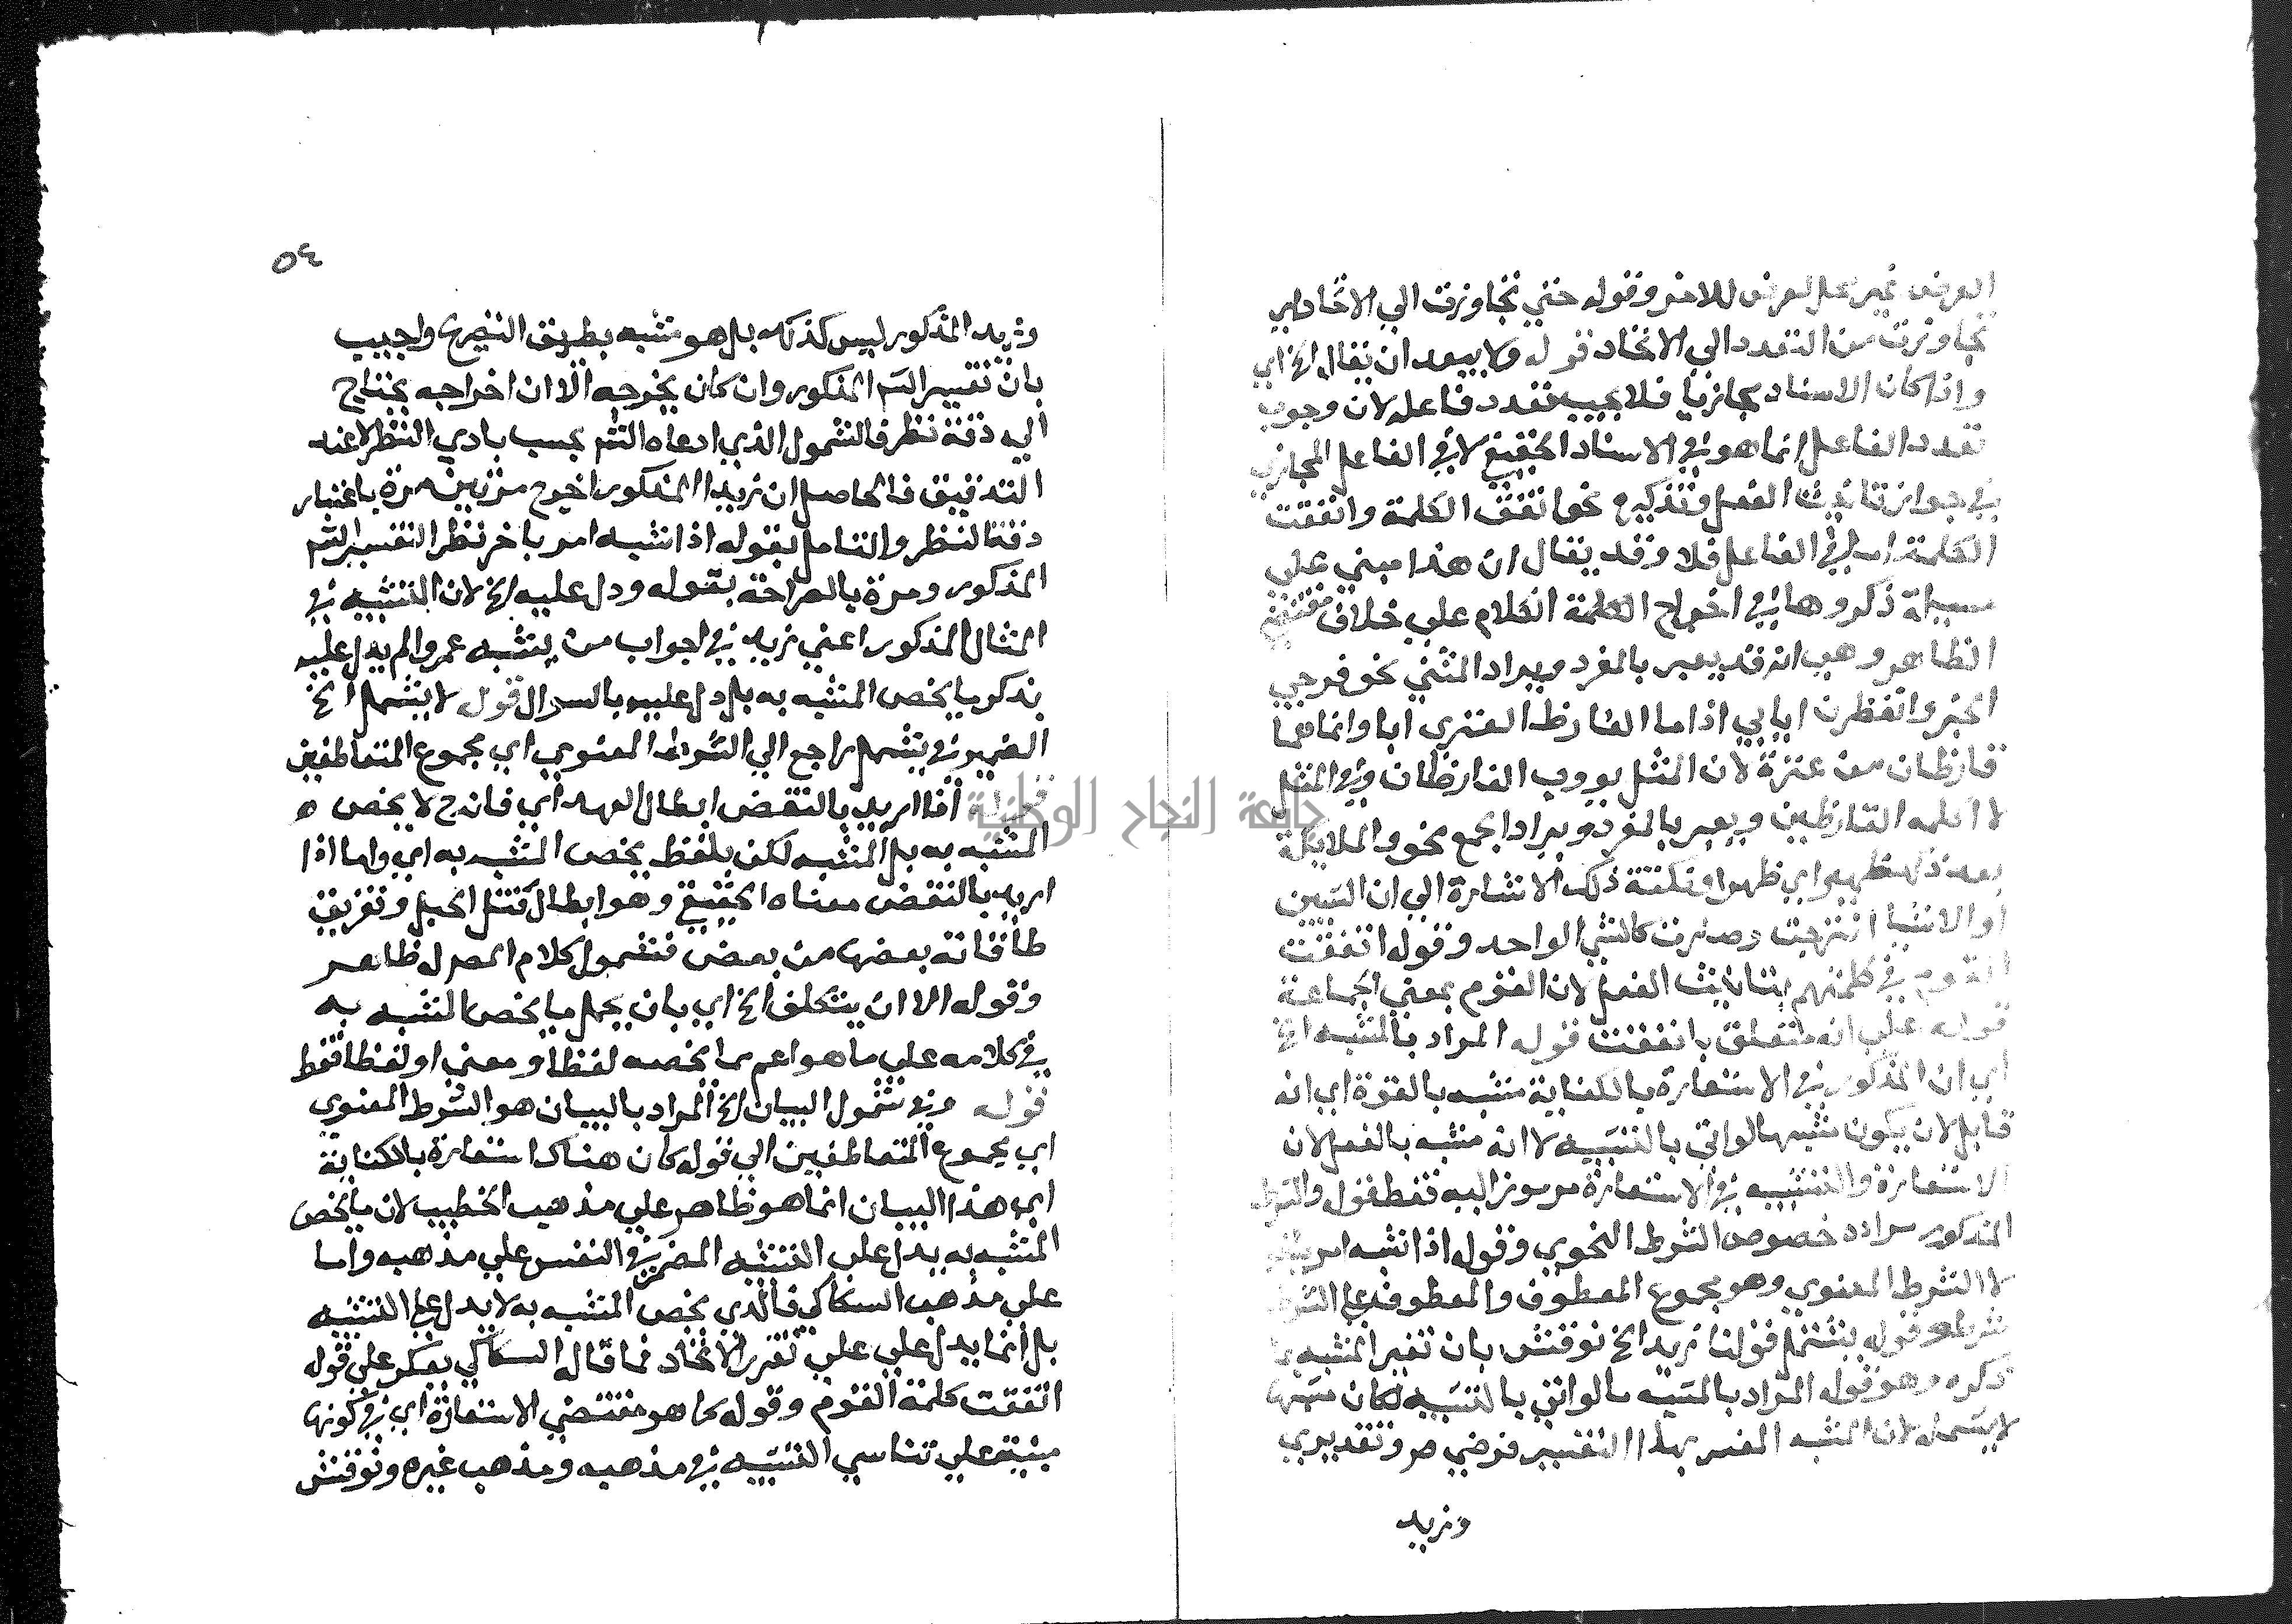 العرض غير محل العرض للاخر وقوله حتي تجاوزت الي الاتحاد اي
تجاوزت من التعدد الي الاتحاد قوله ولا يبعد ان يقال الخ اي
واذا كان الاسناد مجازيا فلا يجب تعدد فاعله لان وجوب
تعدد الفاعل انما هو في الاسناد الحقيقي لا في الفاعل المجازي
في جواز تانيث الفعل وتذكيره نحو اتفق الكلمة واتفقت
الكلمة اما في الفاعل فلا وقد يقال ان هذا مبني علي
مسيلة ذكروها في اخراج الكلمة الكلام علي خلاف مقتضي
الظاهر وهي انه قد يعبر بالمفرد ويراد المثني نحو فرجي
الخير وانتظري ايابي اذا ما القارظ العنزي ابا وانما هما
قارظان من عنزة لان المثل يووب القارظان وفي المثل
لا اكلمه القارظين ويعبر بالمفرد ويراد الجمع نحو والملايكة
بعد ذلك ظهير اي ظهرا ونكتة ذلك الاشارة الي ان الشيين
او الاشيا امتزجت وصارت كالشي الواحد وقوله اتفقت
القوم في كلمتهم بتانيث الفعل لان القوم بمعني الجماعة
قوله علي انه متعلق باتفقت قوله المراد بالمشبه الخ
اي ان المذكور في الاستعارة بالكناية مشبه بالقوة اي انه
قابل لان يكون مشبها لو اتي بالتشبيه لا انه مشبه بالفعل لان
الاستعارة والتشبيه في الاستعارة مرموز اليه فقط قوله والشرط
المذكور مراده خصوص الشرط النحوي وقوله اذا شبه امر
لا الشرط المعنوي وهو مجموع المعطوف والمعطوف علي الشرط
قوله يشتمل قولنا زيد الخ نوقش بان تفسير المشبه بما
ذكره وهو قوله المراد بالمشبه ما لو اتي بالتشبيه لكان مشبها
لا يشمله لان المشبه المفسر بهذا التفسير فرضي وتقديري
وزيد
٥٤
وزيد المذكور ليس كذلك بل هو مشبه بطريق التصريح واجيب
بان تفسير الشم المذكور وان كان يخرجه الا ان اخراجه يحتاج
اليه دقة نظر فالشمول الذي ادعاه الشم بحسب بادي النظر لا عند
التدقيق فالحاصل ان زيدا المذكور اخرج مرتين مرة باعتبار
دقة النظر والتامل بقوله اذا شبه امر باخر نظر التفسير الشم
المذكور ومرة بالصراحة بقوله ودل عليه الخ لان التشبيه في
المثال المذكور اعني زيد في جواب من يشبه عمروا لم يدل عليه
بذكر ما يخص المشبه به بل دل عليه بالسوال قوله لا يشمل الخ
الضمير في يشمل راجع الي الشرط المعنوي اي مجموع المتعاطفين
قوله اذا اريد بالنقض ابطال العهد اي فانه ح لا يخص ه
المشبه به بل المشبه لكن بلفظ يخص المشبه به اي واما اذا
اريد بالنقض معناه الحقيقي وهو ابطال فتل الحبل وتفريق
طاقاته بعضها من بعض فشمول كلام المص له ظاهر
وقوله الا ان يتكلف الخ اي بان يحمل ما يخص المشبه به
في كلامه علي ما هو اعم مما يخصه لفظا ومعني او لفظا فقط
قوله وفي شمول البيان الخ المراد بالبيان هو الشرط المعنوي
اي مجموع المتعاطفين الي قوله كان هناك استعارة بالكناية
اي هذا البيان انما هو ظاهر علي مذهب الخطيب لان ما يخص
المشبه به يدل علي التشبيه المضمر في النفس علي مذهبه واما
علي مذهب السكاكي فالذي يخص المشبه به لا يدل علي التشبيه
بل انما يدل علي علي تقرر الاتحاد فما قاله السكاكي يعكر علي قوله
اتفقت كلمة القوم وقوله كما هو مقتضي الاستعارة اي في كونها
مبنية علي تناسي التشبيه في مذهبه ومذهب غيره ونوقش
جامعة النجاح الوطنية